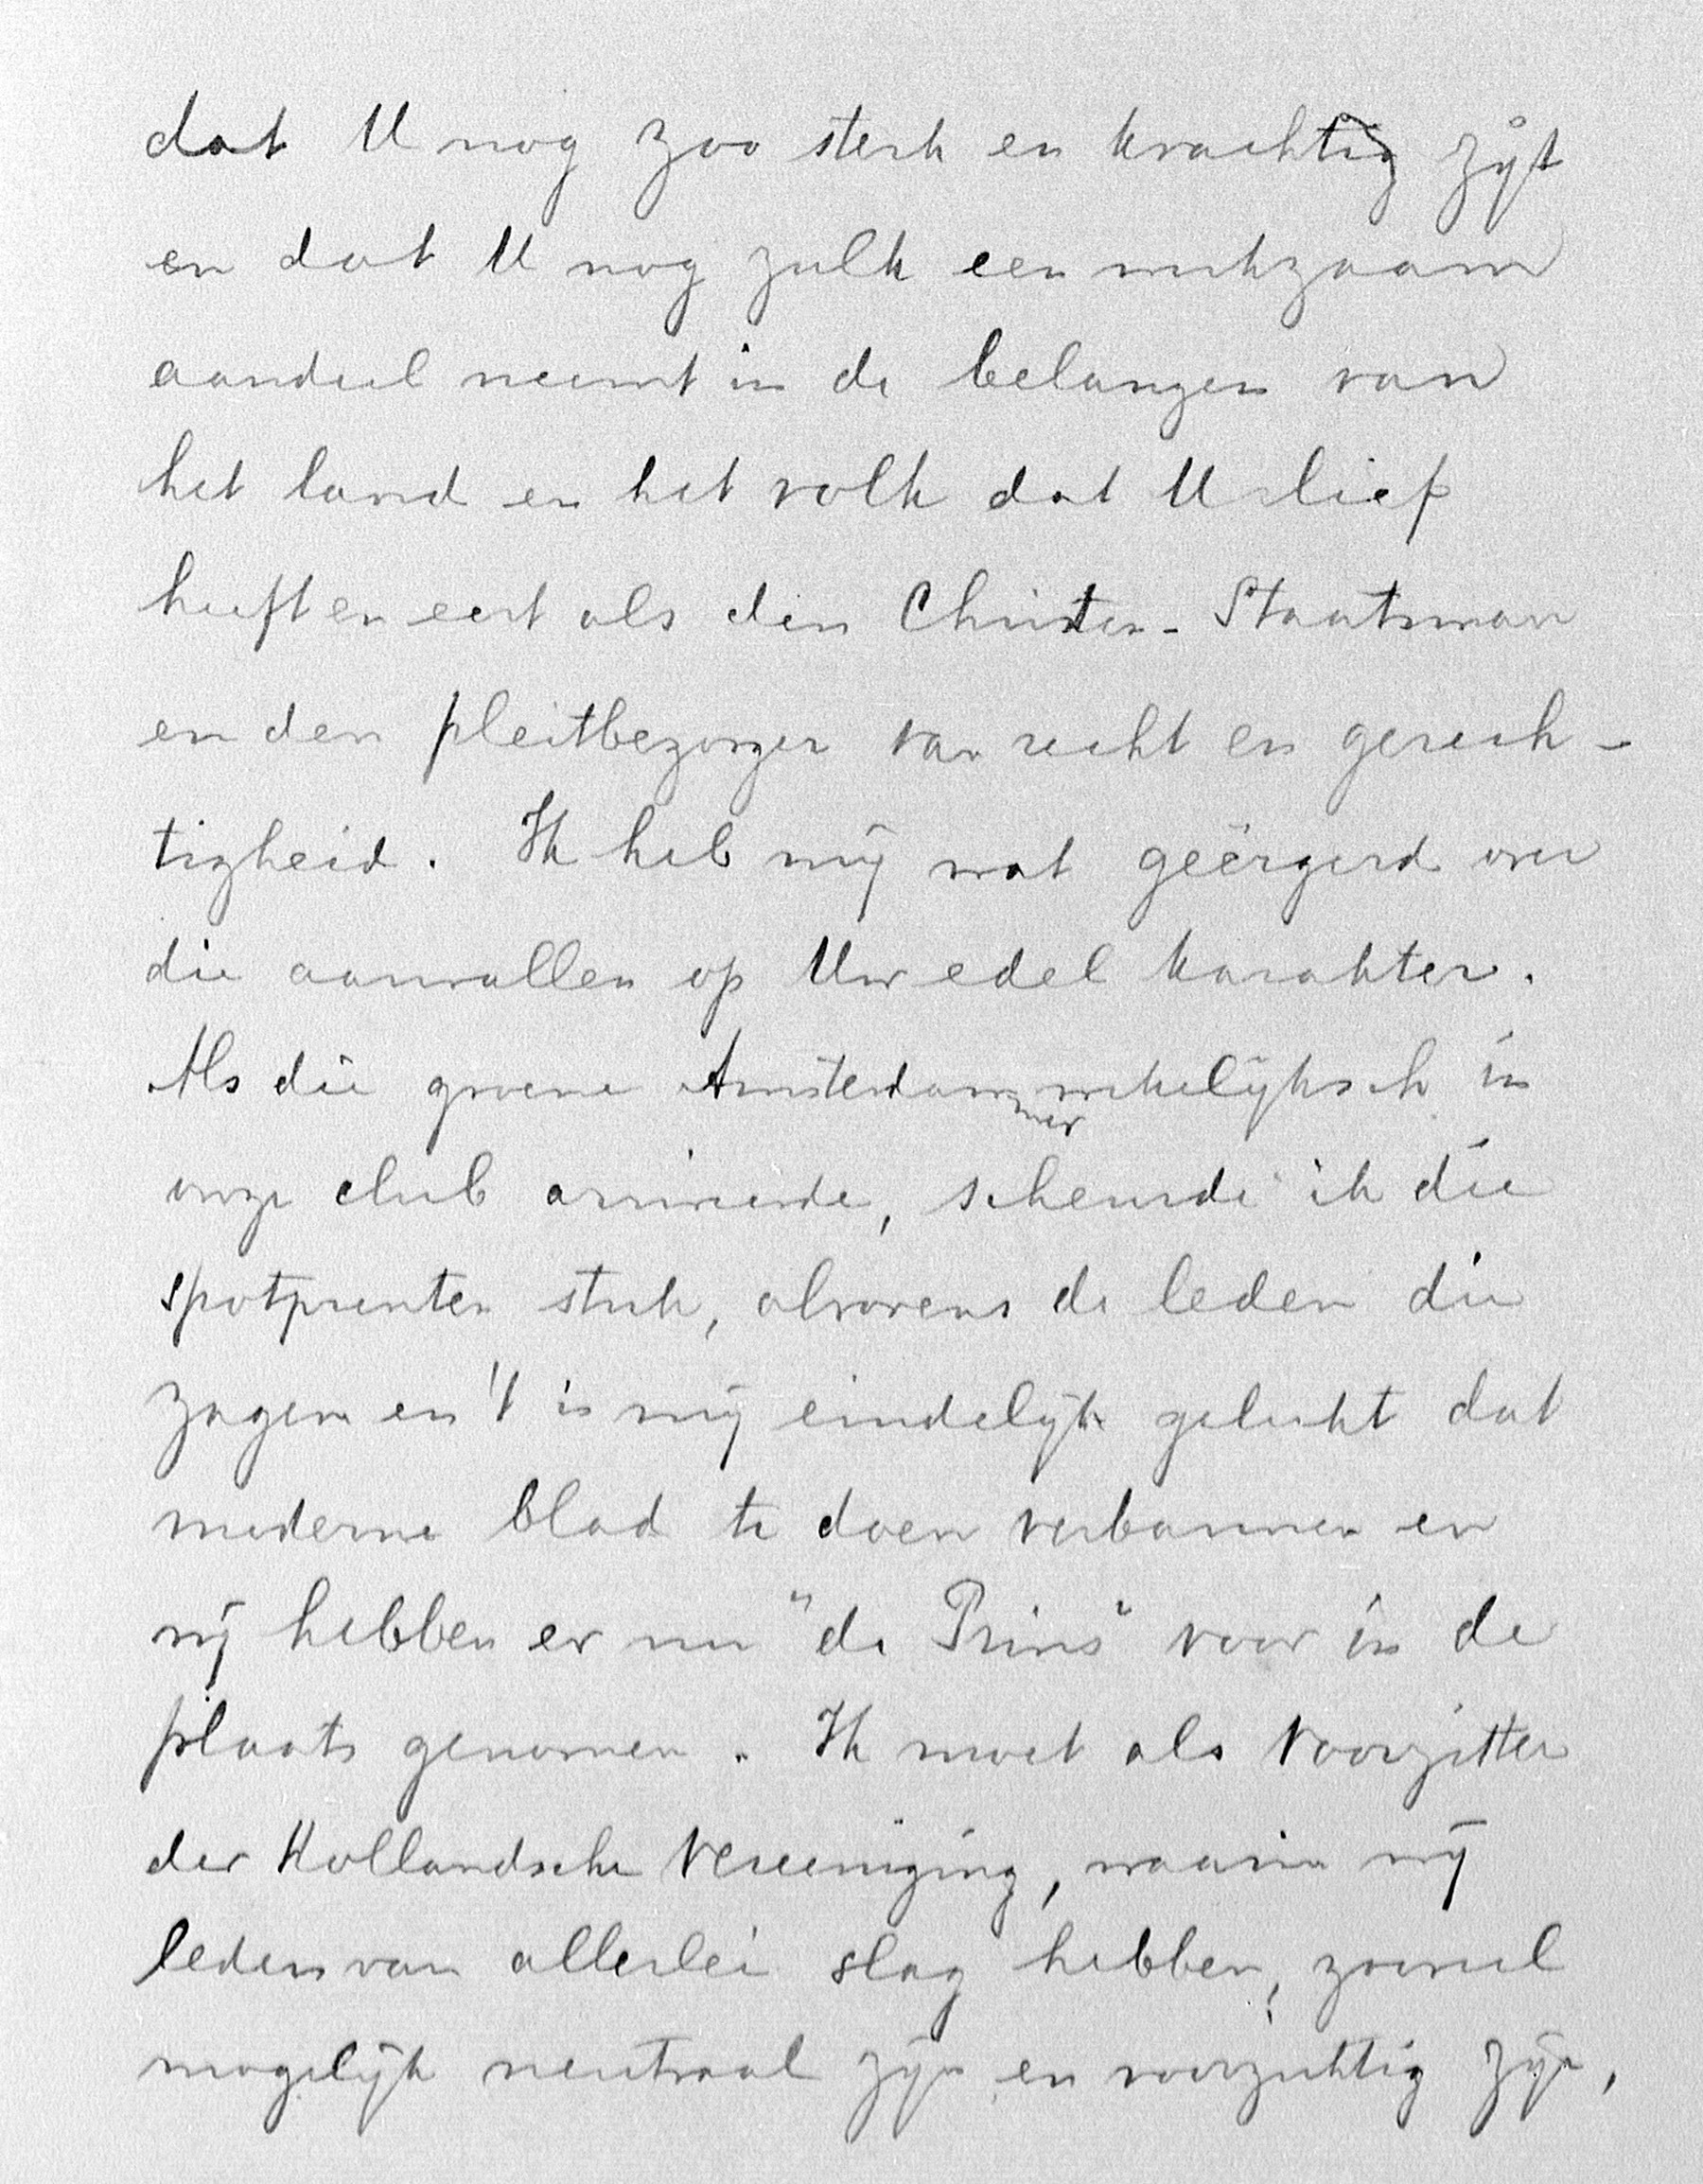 dat U nog zoo sterk en krachtig zijt
en dat U nog zulk een werkzaam
aandeel neemt in de belangen van
het land en het volk dat U lief
heeft en eert als den Christen-Staatsman
en den pleitbezorger van recht en gerech-
tigheid. Ik heb mij wat geërgerd over
die aanvallen op Uw edel karakter.
Als die groene Amsterdammer wekelijksch in
onze club arriveerde, scheurde ik die
spotprenten stuk, alvorens de leden die
zagen en 't is mij eindelijk gelukt dat
moderne blad te doen verbannen en
wij hebben er nu "de Prins" voor in de
plaats genomen. Ik moet als Voorzitter
der Hollandsche Vereeniging, waarin wij
leden van allerlei slag hebben, zooveel
mogelijk neutraal zijn en voorzichtig zijn,